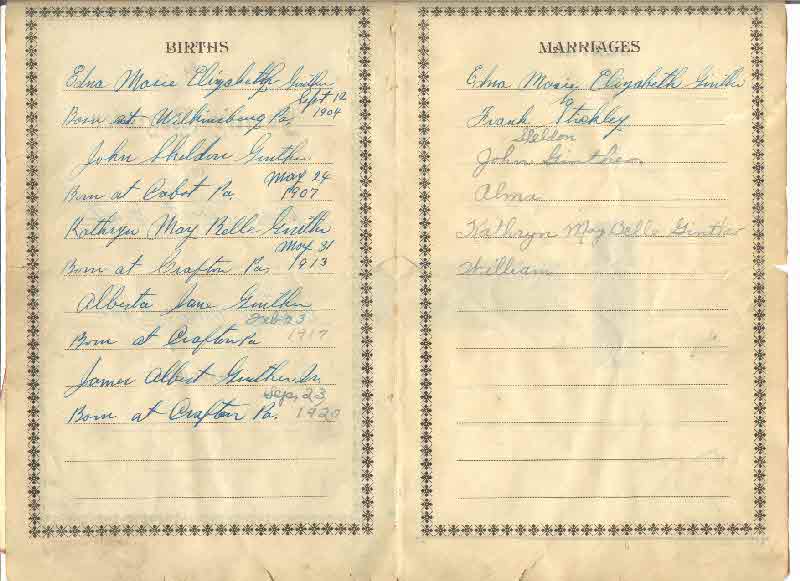 BIRTHS
Edna Marie Elizabeth Ginther
Sept 12
Born at Wilkinsburg Pa. 1904
John Sheldon Ginther
May 24
Born at Cabot Pa. 1907
Kathryn May Belle Ginther
May 31
Born at Crafton Pa. 1913
Alberta Jane Ginther
Feb 23
Born at Crafton Pa 1917
James Albert Ginther Jr.
Sep. 23
Born at Crafton Pa. 1920
MARRIAGES
Edna Marie Elizabeth Ginther
to
Frank
Sheldon
John Ginther
Alma
Kathryn May Belle Ginther
William